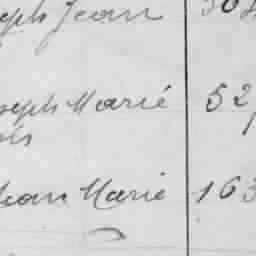 seph Jean 304
seph Marie 52
ois
Jean Marie 163